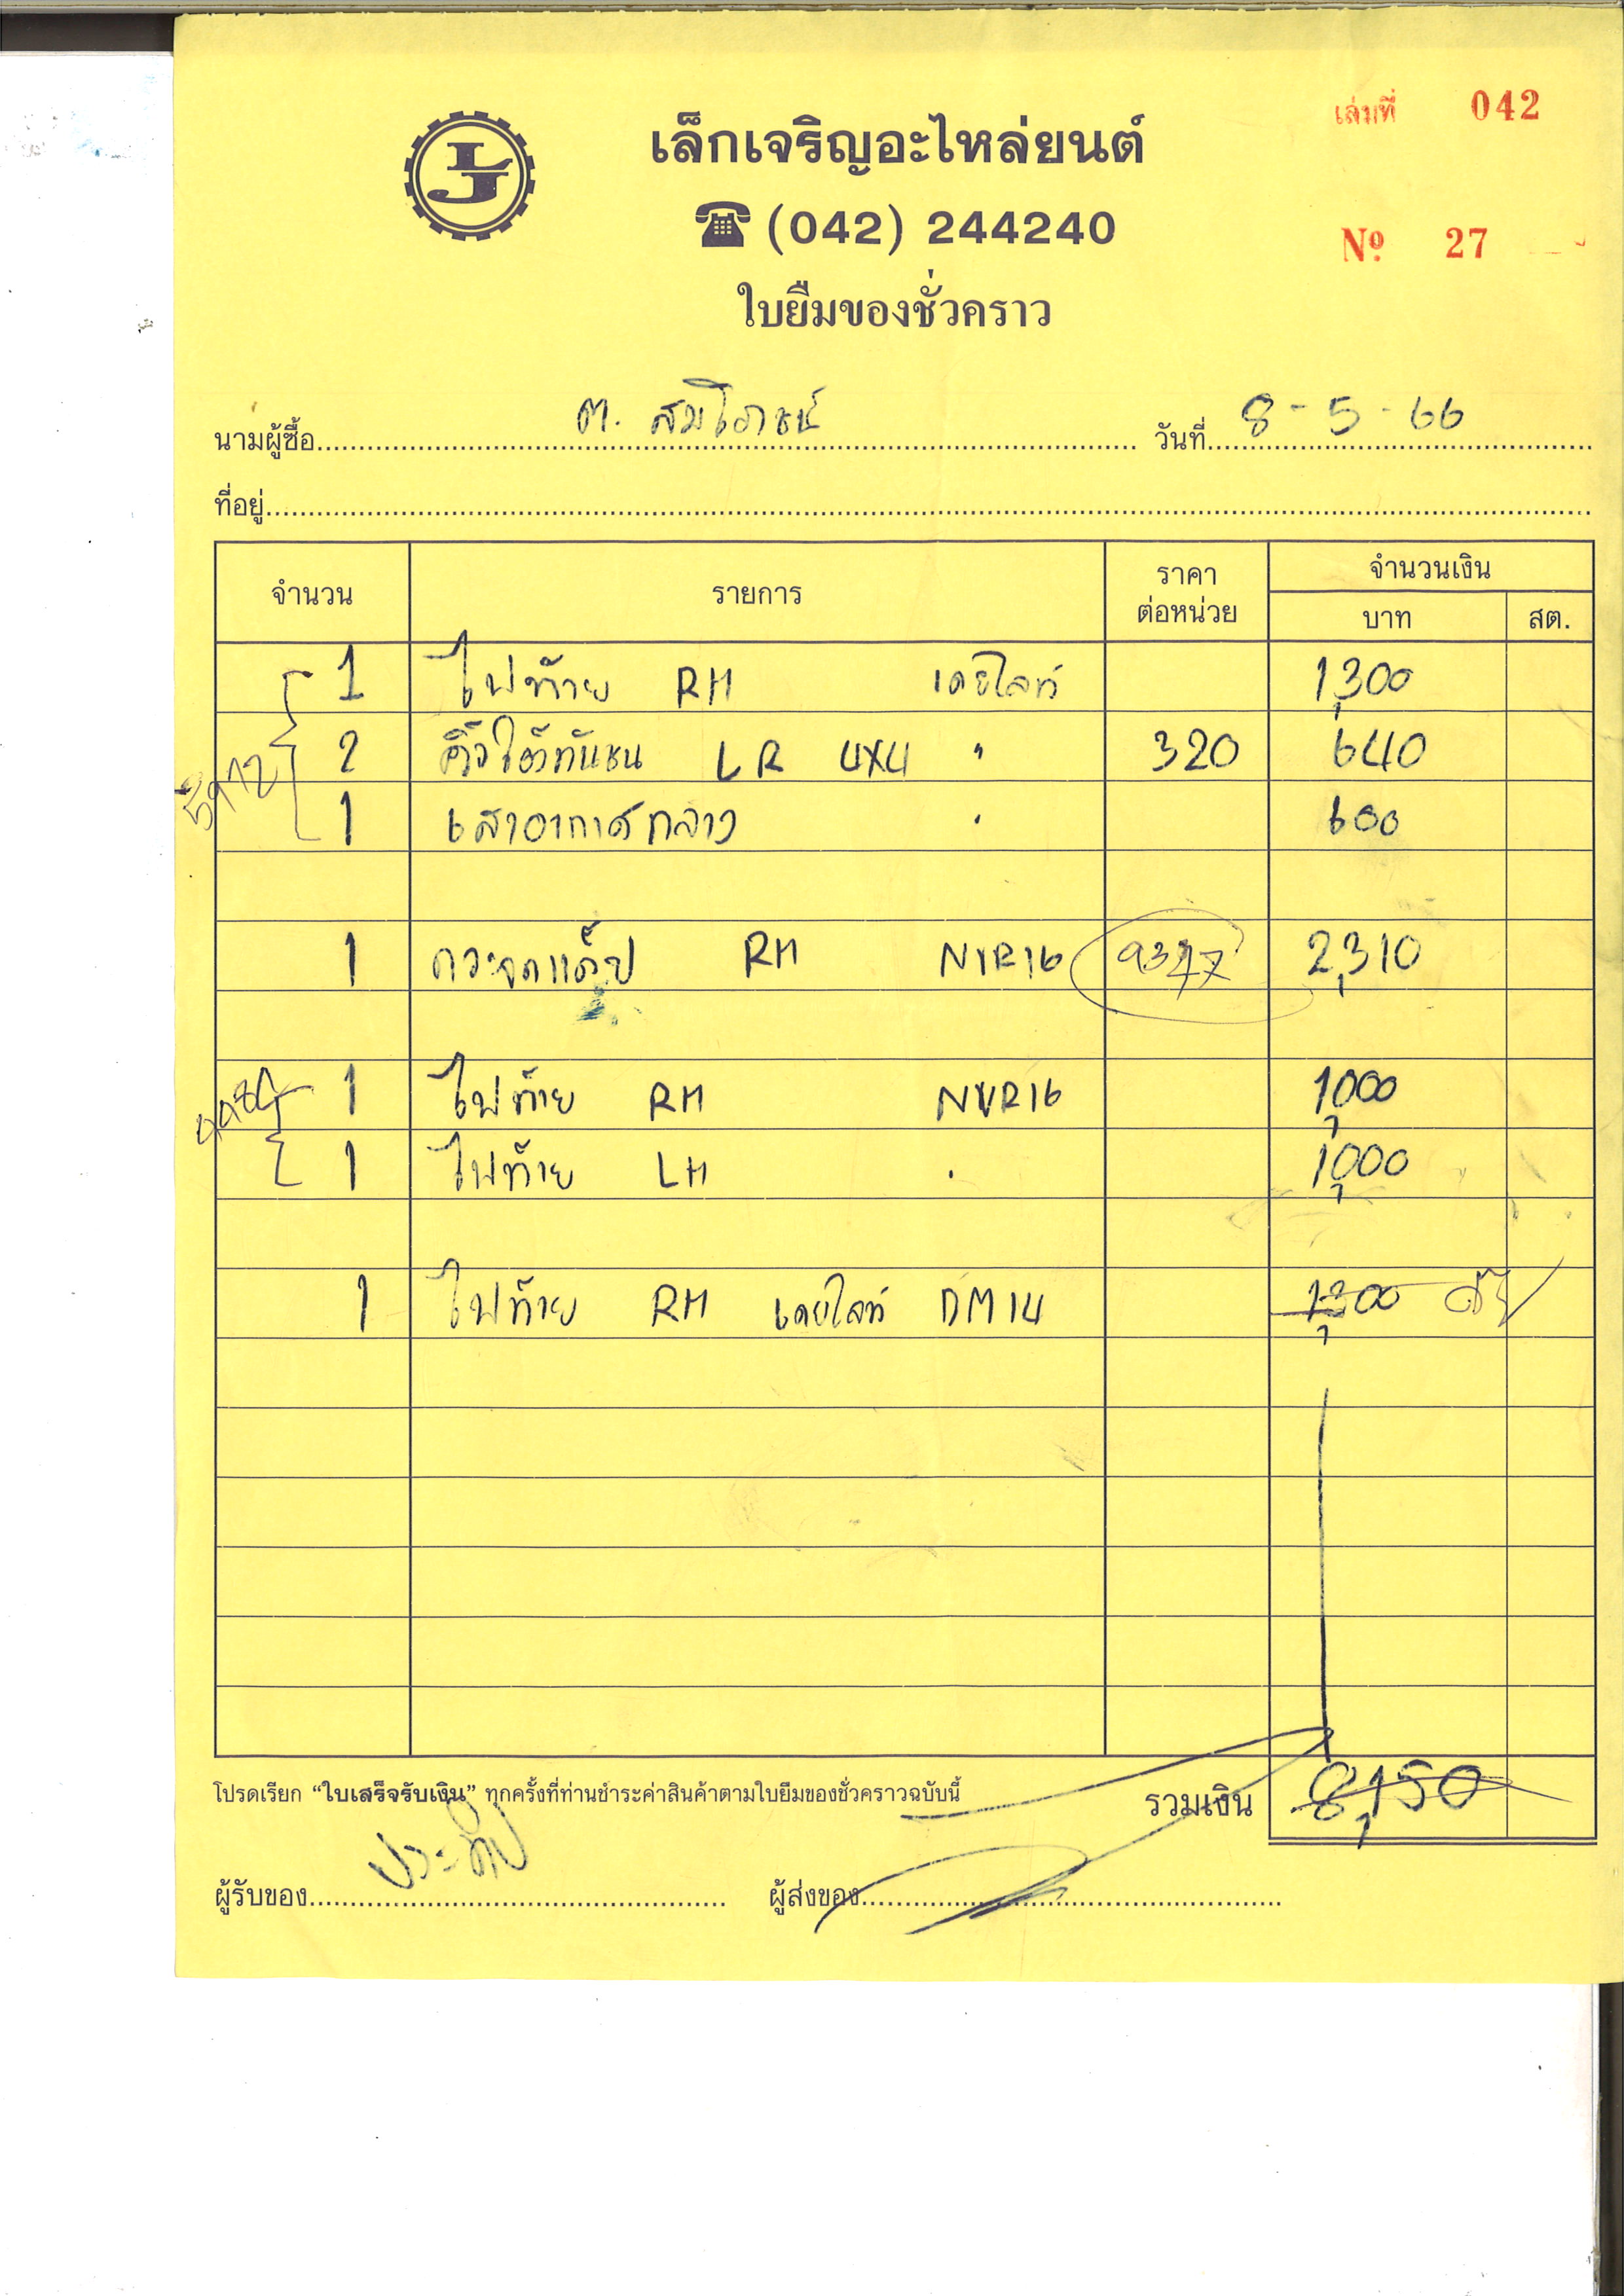 เล่มที่ 042
LJ
เล็กเจริญอะไหล่ยนต์
(042) 244240
Nº 27
ใบยืมของชั่วคราว
นามผู้ซื้อ ต. สมโภชน์ วันที่ 8-5-66
ที่อยู่
จำนวน รายการ ราคาต่อหน่วย จำนวนเงิน
บาท สต.
1 ไฟท้าย RH เดย์ไลท์ 1,300
2 คิ้วใต้กันชน LR 4X4 " 320 640
5912
1 เสาอากาศกลาง " 600
1 กระจกแค็ป RH NVR16 9377 2,310
1 ไฟท้าย RH NVR16 1,000
1 ไฟท้าย LH " 1,000
1 ไฟท้าย RH เดย์ไลท์ DM14 1,300
โปรดเรียก “ใบเสร็จรับเงิน” ทุกครั้งที่ท่านชำระค่าสินค้าตามใบยืมของชั่วคราวฉบับนี้ รวมเงิน 8,150
ผู้รับของ ประทีป ผู้ส่งของ